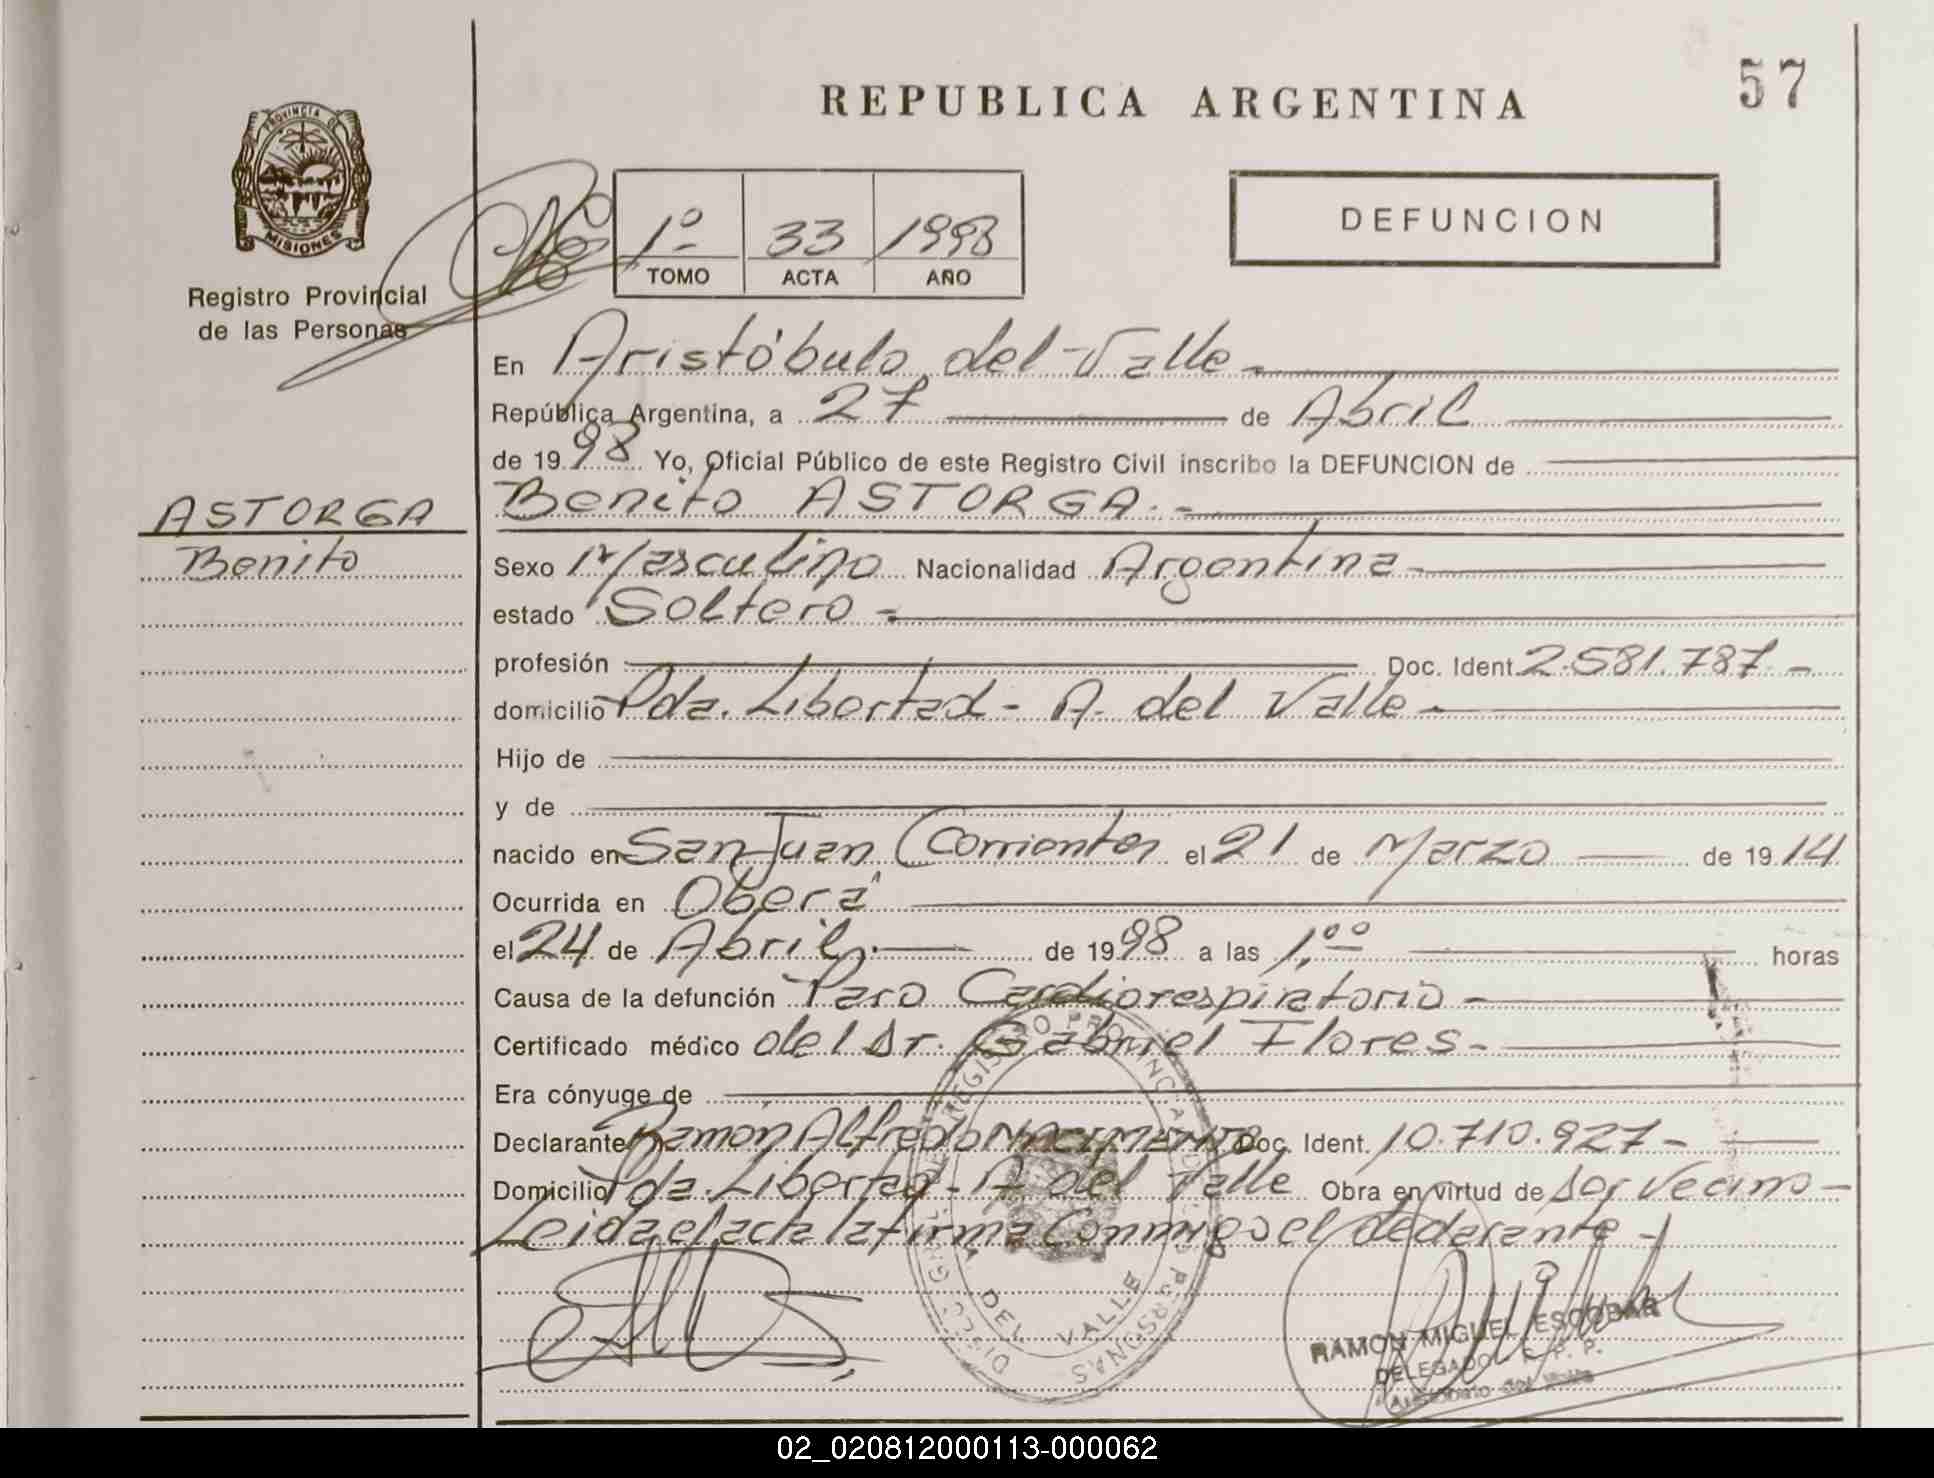 57
REPUBLICA ARGENTINA
PROVINCIA DE
MISIONES
Registro Provincial
de las Personas
1º 33 1998
TOMO ACTA AÑO
DEFUNCION
En Aristóbulo del Valle.
República Argentina, a 27 de Abril
de 1998 Yo, Oficial Público de este Registro Civil inscribo la DEFUNCION de
ASTORGA
Benito
Benito ASTORGA.-
Sexo Masculino Nacionalidad Argentina-
estado Soltero-
profesión Doc. Ident. 2.581.787.-
domicilio Pda. Libertad- A. del Valle-
Hijo de
y de
nacido en San Juan Corrientes el 21 de Marzo de 1914
Ocurrida en Oberá
el 24 de Abril.- de 1998 a las 1,00 horas
Causa de la defunción Paro Cardiorespiratorio-
Certificado médico del Dr. Gabriel Flores-
Era cónyuge de
Declarante Ramón Alfredo Doc. Ident. 10.710.927-
Domicilio Pda. Libertad- A del Valle Obra en virtud de ser Vecino-
Leida el acta la firma Conmigo el declarante-
REGISTRO PROVINCIAL DE LAS PERSONAS
DEL VALLE
RAMON MIGUEL ESCOBAR
DELEGADO R. P. P.
Aristóbulo del Valle
02_020812000113-000062